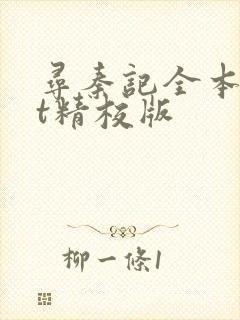 尋秦記全本
t精校版
柳一條1